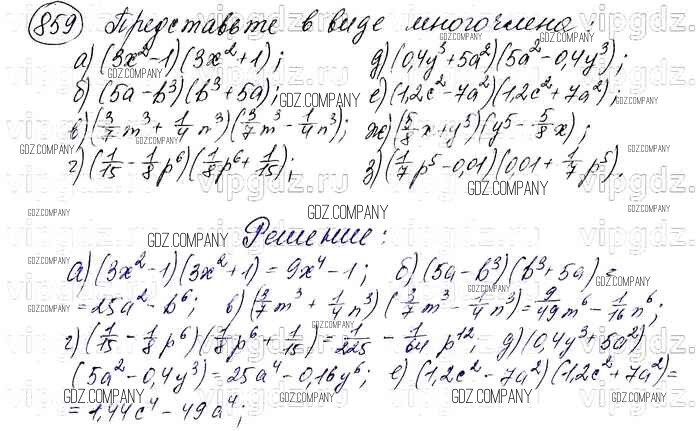 859 Представьте в виде многочлена:
а) (3x² - 1)(3x² + 1); д) (0,4y³ + 5a²)(5a² - 0,4y³);
б) (5a - b³)(b³ + 5a); е) (1,2c² - 7a²)(1,2c² + 7a²);
в) (3/7 m³ + 1/4 n³)(3/7 m³ - 1/4 n³); ж) (5/8 x + y⁵)(y⁵ - 5/8 x);
г) (1/15 - 1/8 p⁶)(1/8 p⁶ + 1/15); з) (1/7 p⁵ - 0,01)(0,01 + 1/7 p⁵).
Решение:
а) (3x² - 1)(3x² + 1) = 9x⁴ - 1; б) (5a - b³)(b³ + 5a) =
= 25a² - b⁶; в) (3/7 m³ + 1/4 n³)(3/7 m³ - 1/4 n³) = 9/49 m⁶ - 1/16 n⁶;
г) (1/15 - 1/8 p⁶)(1/8 p⁶ + 1/15) = 1/225 - 1/64 p¹², д) (0,4y³ + 5a²)
(5a² - 0,4y³) = 25a⁴ - 0,16y⁶; е) (1,2c² - 7a²)(1,2c² + 7a²) =
= 1,44c⁴ - 49a⁴;
vipgdz.ru
GDZ.COMPANY